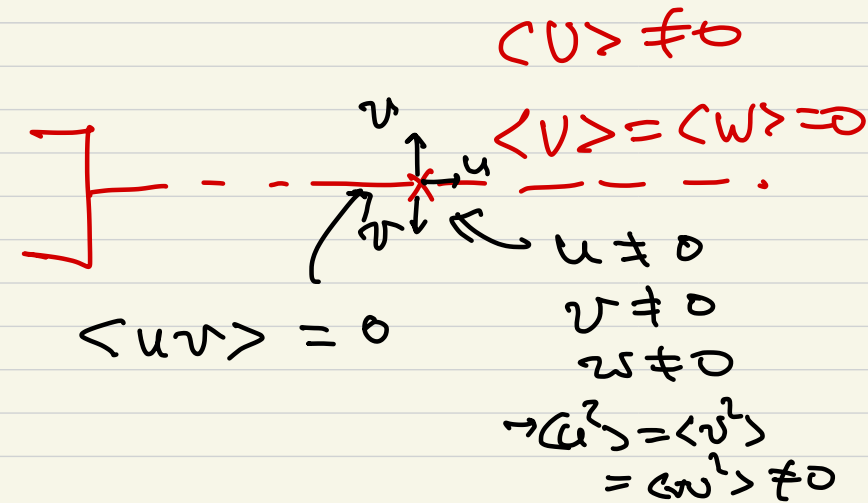 <U> ≠ 0
<V> = <W> = 0
v
u
v
u ≠ 0
v ≠ 0
<uv> = 0
w ≠ 0
→ <u²> = <v²>
= <w²> ≠ 0